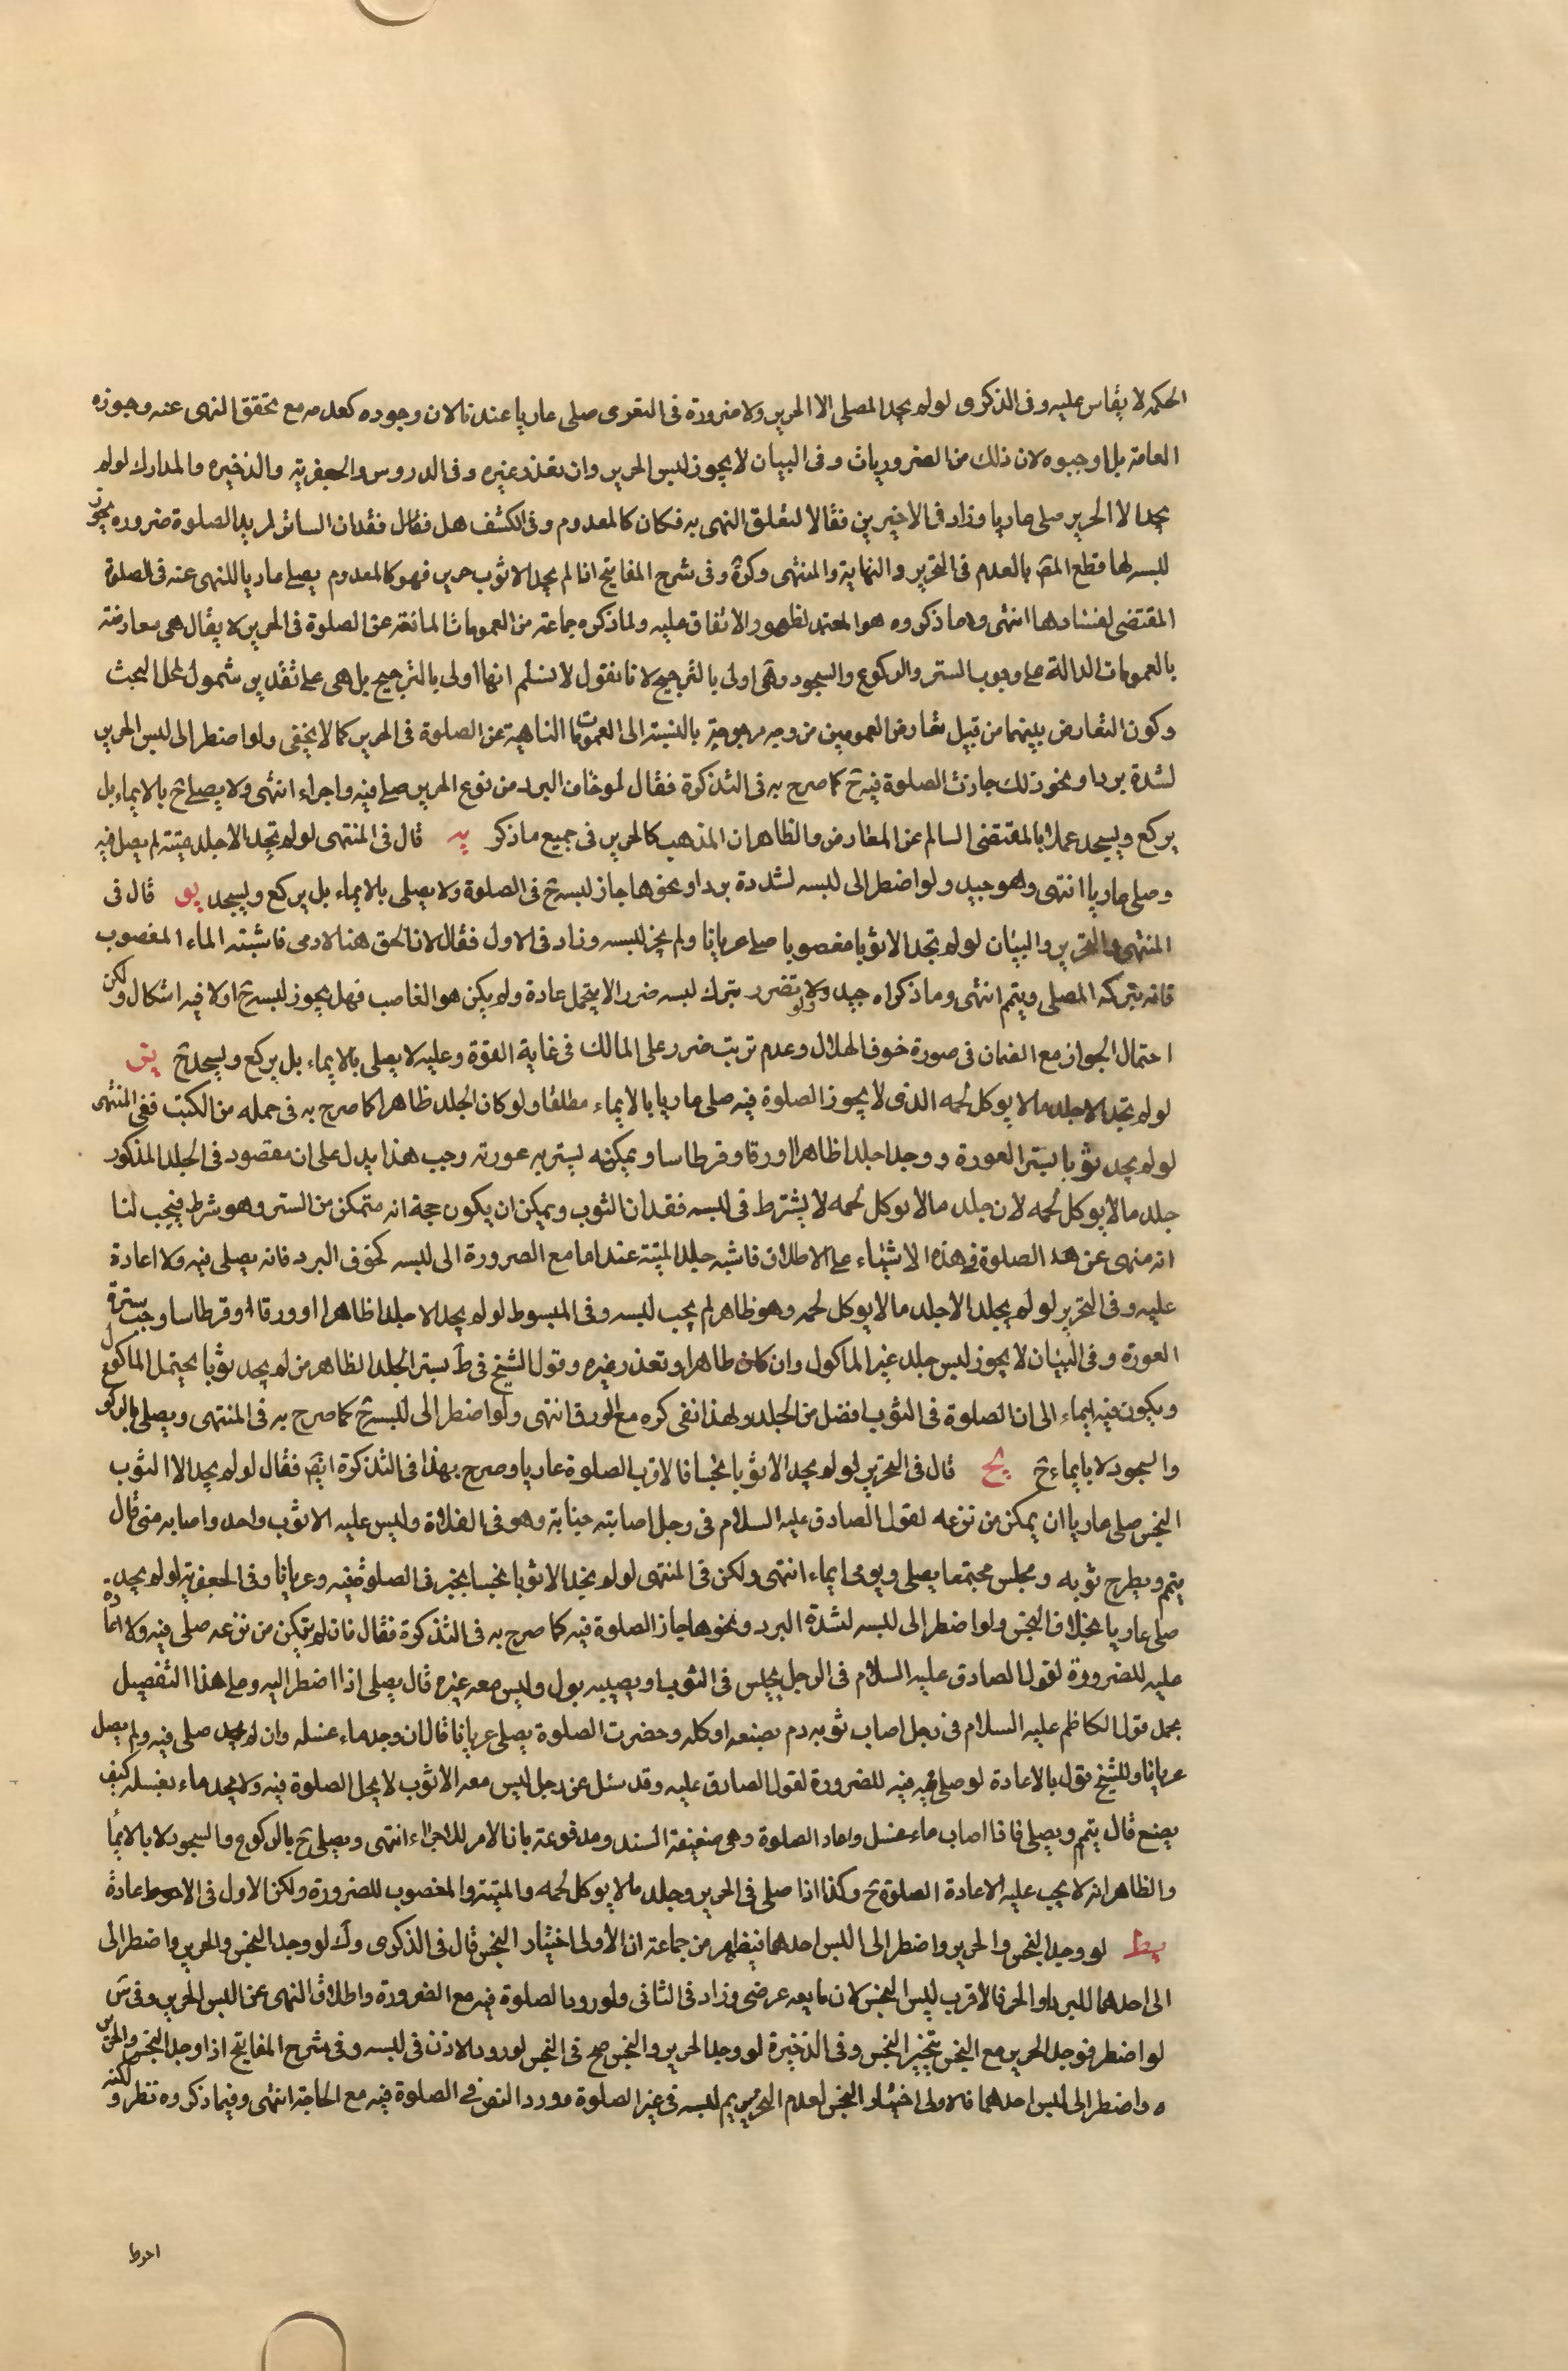 الحكم لا يقاس عليه وفى الذكرى لو لم يجد المصلى الا الحرير ولا ضرورة فى التعرى صلى عاريا عندنا لان وجوده كعدمه مع تحقق النهى عنه وجوزه
العامة بل اوجبوه لان ذلك من الضروريات وفى البيان لا يجوز لبس الحرير وان تعذر غيره وفى الدروس والجعفرية والذخيره والمدارك لو لم
يجد الا الحرير صلى عاريا وزاد فى الاخيرين فقالا لتعلق النهى به فكان كالمعدوم وفى الكشف هل فقدان الساتر لمريد الصلوة ضروره يجوز
للبس لها قطع المص بالعدم فى التحرير والنهاية والمنتهى وكرة وفى شرح المفاتيح اذا لم يجد الا ثوب حرير فهو كالمعدوم يصلى عاريا للنهى عنه فى الصلوة
المقتضى لفسادها انتهى وما ذكروه هو المعتمد لظهور الاتفاق عليه ولما ذكره جماعة من العمومات المانعة عن الصلوة فى الحرير لا يقال هى معارضة
بالعمومات الدالة على وجوب الستر والركوع والسجود وهى اولى بالترجيح لانا نقول لا نسلم انها اولى بالترجيح بل هى على تقدير شمول لمحل البحث
وكون التعارض بينهما من قبيل تعارض العمومين من وجه مرجوحة بالنسبة الى العمومات الناهية عن الصلوة فى الحرير كما لا يخفى ولو اضطر الى لبس الحرير
لشدة برد او نحو ذلك جازت الصلوة فيه ح كما صرح به فى التذكرة فقال لو خاف البرد من نزع الحرير صلى فيه واجزاء انتهى ولا يصلى ح بالايماء بل
يركع ويسجد عملا بالمقتضى السالم عن المعارض والظاهر ان المذهب كالحرير فى جميع ما ذكر يه قال فى المنتهى لو لم تجد الا جلد ميتة لم يصل فيه
وصلى عاريا انتهى وهو جيد ولو اضطر الى لبسه لشدة برد او نحوها جاز لبسه ح فى الصلوة ولا يصلى بالايماء بل يركع ويسجد يو قال فى
المنتهى والتحرير والبيان لو لم تجد الا ثوبا مغصوبا صلى عريانا ولم يجز لبسه وزاد فى الاول فقال لان الحق هنا لادمى فاشبه الماء المغصوب
فانه يتركه المصلى ويتيمم انتهى وما ذكراه جيد ولو تضرر بترك لبسه ضررا لا يتحمل عادة ولم يكن هو الغاصب فهل يجوز لبسه ح اولا فيه اشكال ولكن
احتمال الجواز مع الضمان فى صورة خوف الهلاك وعدم ترتب ضرر على المالك فى غاية القوة وعليه لا يصلى بالايماء بل يركع ويسجد ح يز
لو لم تجد الا جلد ما لا يوكل لحمه الذى لا يجوز الصلوة فيه صلى عاريا بالايماء مطلقا ولو كان الجلد ظاهرا كما صرح به فى جمله من الكتب ففى المنتهى
لو لم يجد ثوبا يستر العورة ووجد جلدا ظاهرا او ورقا وقرطاسا ويمكنه يستر به عورته وجب هذا يدل على ان مقصود فى الجلد المذكور
جلد ما لا يوكل لحمه لان جلد ما لا يوكل لحمه لا يشترط فى لبسه فقدان الثوب ويمكن ان يكون حجة انه متمكن من الستر وهو شرط فيجب لنا
انه منهى عن هذ الصلوة فى هذه الاشياء على الاطلاق فاشبه جلد الميتة عند اما مع الضرورة الى لبسه كخوف البرد فانه يصلى فيه ولا اعادة
عليه وفى التحرير لو لم يجد الا جلد ما لا يوكل لحمه وهو ظاهر لم يجب لبسه وفى المبسوط لو لم يجد الا جلدا ظاهرا او ورقا او قرطاسا وجب ستر
العورة وفى البيان لا يجوز لبس جلد غير الماكول وان كان طاهرا وتعذر غيره وقول الشيخ فى ط يستر الجلد الظاهر من لم يجد ثوبا يحتمل الماكول
ويكون فيه ايماء الى ان الصلوة فى الثوب افضل من الجلد ولهذا نفى كره مع الورق انتهى ولو اضطر الى للبسه ح كما صرح به فى المنتهى ويصلى بالركوع
والسجود لا بايماء ح يح قال فى التحرير لو لم يجد الا ثوبا نجسا فالاقرب الصلوة عاريا وصرح بهذا فى التذكرة ايض فقال لو لم يجد الا الثوب
النجس صلى عاريا ان يمكن من نزعه لقول الصادق عليه السلام فى رجل اصابته جنابة وهو فى الفلاة وليس عليه الا ثوب واحد واصابه منى قال
يتيمم ويطرح ثوبه ومجلس مجتمعا يصلى ويومى ايماء انتهى ولكن فى المنتهى لو لم يجد الا ثوبا نجسا يخير فى الصلوة فيه وعريانا وفى الجعفرية لو لم يجده
صلى عاريا بخلاف النجس ولو اضطر الى للبسه لشدة البرد ونحوها جاز الصلوة فيه كما صرح به فى التذكرة فقال فان لم يتمكن من نزعه صلى فيه ولا اعادة
عليه للضرورة لقول الصادق عليه السلام فى الرجل يجلس فى الثوب او يصيبه بول وليس معه غيره قال يصلى اذا اضطر اليه وعلى هذا التفصيل
يحمل قول الكاظم عليه السلام فى رجل اصاب ثوبه دم بصنعه او كله وحضرت الصلوة يصلى عريانا قال ان وجد ماء غسله وان لم يجد صلى فيه ولم يصل
عريانا وللشيخ قول بالاعادة لو صلى فيه للضرورة لقول الصادق عليه وقد سئل عن رجل ليس معه الا ثوب لا يحل الصلوة فيه ولا يجد ماء يغسله كيف
يصنع قال يتيمم ويصلى فاذا اصاب ماء غسل واعاد الصلوة وهى ضعيفة السند ومدفوعة بان الامر للاجزاء انتهى ويصلى ح بالركوع والسجود لا بالايماء
والظاهر انه لا يجب عليه الاعادة الصلوة ح وكذا اذا صلى فى الحرير وجلد ما لا يوكل لحمه والميتة والمغصوب للضرورة ولكن الاول فى الاحوط اعادة
يط لو وجد النجس والحرير واضطر الى اللبس احدهما فيظهر من جماعة ان الاولى اختيار النجس قال فى الذكرى ولك لو وجد النجس والحرير واضطر الى
الى احدهما للبرد او الحر فالاقرب لبس النجس لان مانعه عرضى وزاد فى الثانى ولورود الصلوة فيه مع الضرورة واطلاق النهى عن اللبس الحرير وفى س
لو اضطر فوجد الحرير مع النجس يتخير النجس وفى الذخيرة لو وجد الحرير والنجس صح فى النجس لورود الاذن فى للبسه وفى شرح المفاتيح اذا وجد النجس والحرير
ه واضطر الى للبس احدهما فالاولى اختيار النجس لعدم التحريم للبسه فى غير الصلوة وورد النص فى الصلوة فيه مع الحاجة انتهى وفيما ذكروه نظر ولكنه
احوط